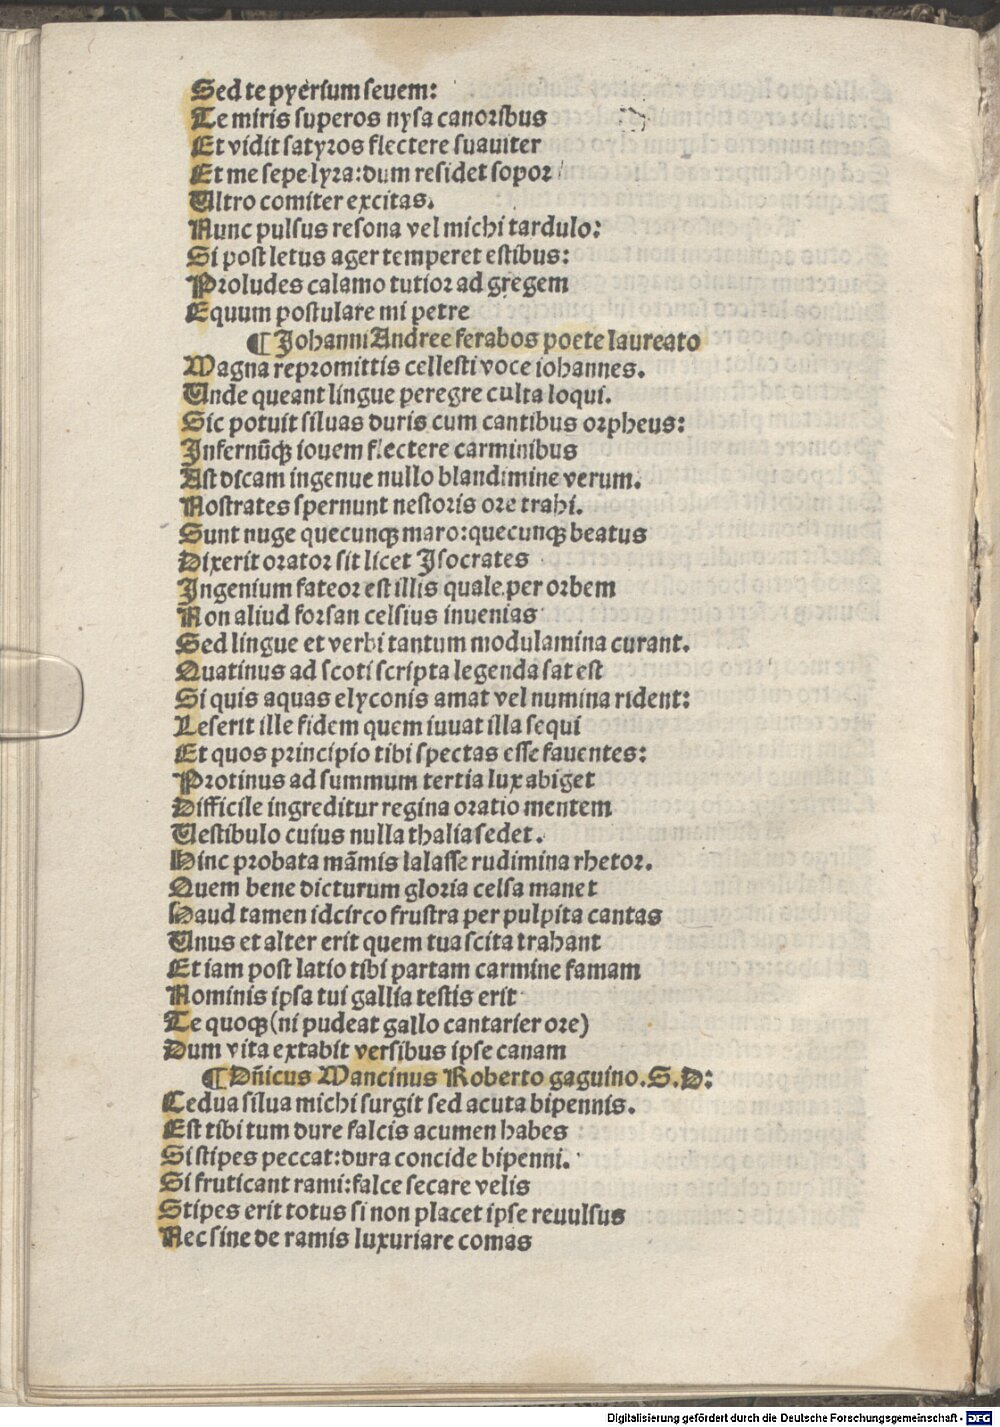 Sed te pyerium seuem:
Te miris superos nysa canoribus
Et vidit satyros flectere suauiter
Et me sepe lyra:dum residet sopor
Ultro comiter excitas.
Nunc pulsus resona vel michi tardulo:
Si post letus ager temperet estibus:
Proludes calamo tutior ad gregem
Equum postulare mi petre
¶ Johanni Andree ferabos poete laureato
Magna repromittis cellesti voce iohannes.
Unde queant lingue peregre culta loqui.
Sic potuit siluas duris cum cantibus orpheus:
Infernūqꝫ iouem flectere carminibus
Ast dicam ingenue nullo blandimine verum.
Nostrates spernunt nestoris ore trahi.
Sunt nuge quecunqꝫ maro:quecunqꝫ beatus
Dixerit orator sit licet Isocrates
Ingenium fateor est illis quale per orbem
Non aliud forsan celsius inuenias
Sed lingue et verbi tantum modulamina curant.
Quatinus ad scoti scripta legenda sat est
Si quis aquas elyconis amat vel numina rident:
Leserit ille fidem quem iuuat illa sequi
Et quos principio tibi spectas esse fauentes:
Protinus ad summum tertia lux abiget
Difficile ingreditur regina oratio mentem
Uestibulo cuius nulla thalia sedet.
Hinc probata māmis lalasse rudimina rhetor.
Quem bene dicturum gloria celsa manet
Haud tamen idcirco frustra per pulpita cantas
Unus et alter erit quem tua scita trahant
Et iam post latio tibi partam carmine famam
Nominis ipsa tui gallia testis erit
Te quoqꝫ(ni pudeat gallo cantarier ore)
Dum vita extabit versibus ipse canam
¶ Dn̄icus Mancinus Roberto gaguino.S.D:
Cedua silua michi surgit sed acuta bipennis.
Est tibi tum dure falcis acumen habes
Si stipes peccat:dura concide bipenni.
Si fruticant rami:falce secare velis
Stipes erit totus si non placet ipse reuulsus
Nec sine de ramis luxuriare comas
Digitalisierung gefördert durch die Deutsche Forschungsgemeinschaft - DFG